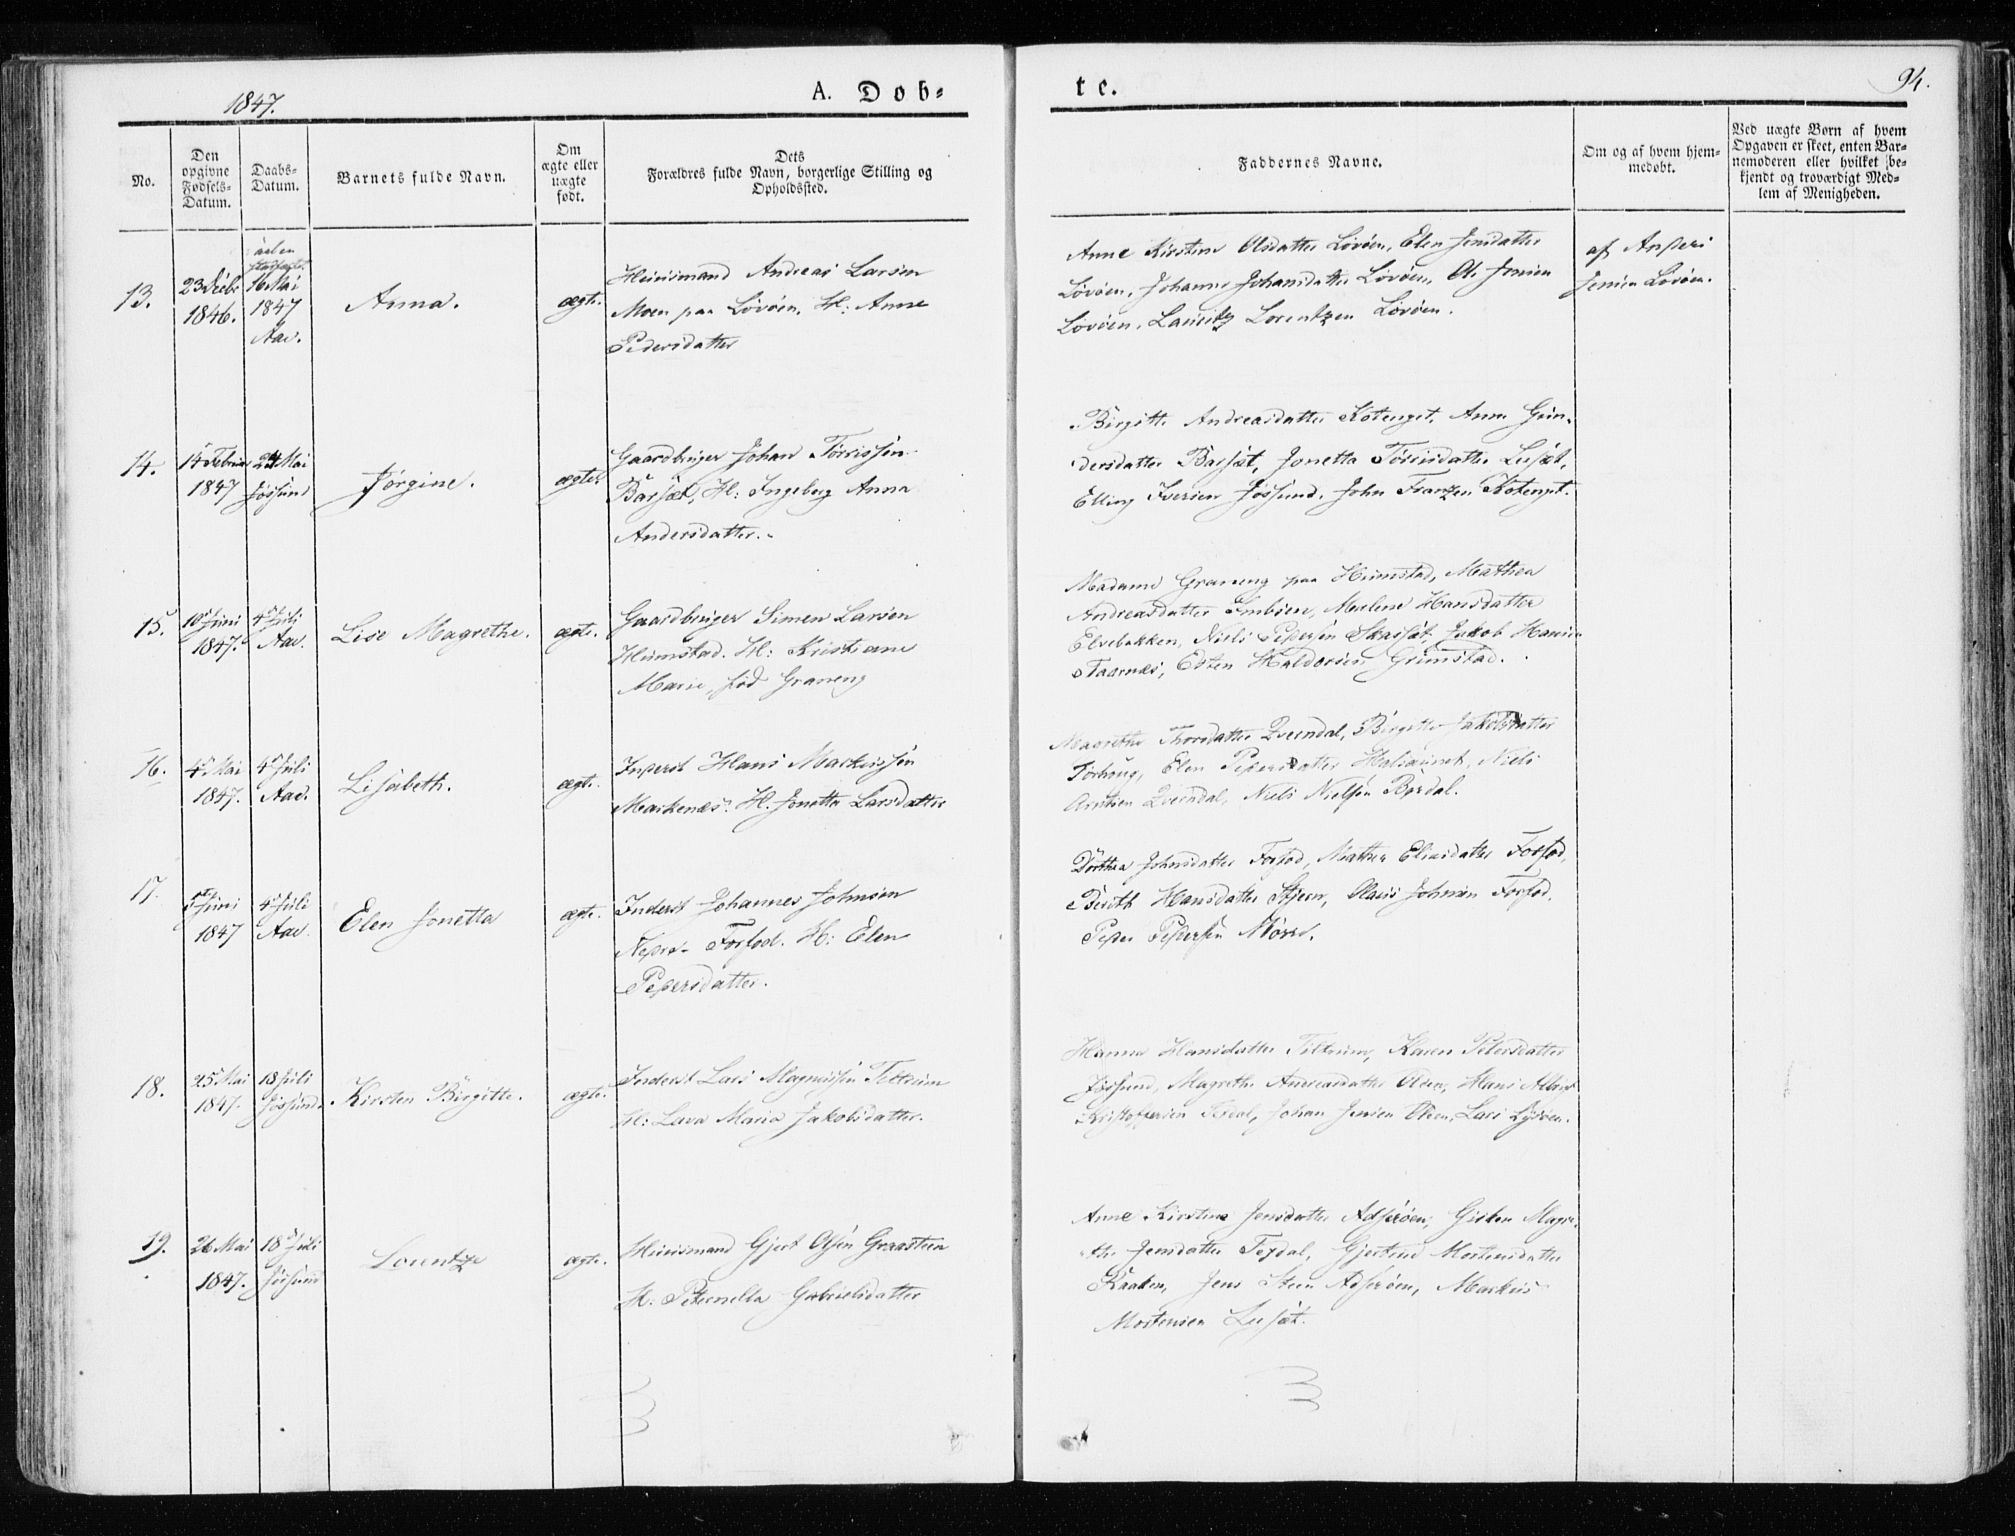 1847.
A. Døb-
te.
94.
No.
Den opgivne Fødsels-Datum.
Daabs-Datum.
Barnets fulde Navn.
Om ægte eller uægte født.
Dets
Forældres fulde Navn, borgerlige Stilling og
Opholdssted.
Faddernes Navne.
Om og af hvem hjem-
medøbt.
Ved uægte Børn af hvem
Opgaven er skeet, enten Bar-
nemoderen eller hvilket be-
kjendt og troværdigt Med-
lem af Menigheden.
13.
23 Decbr
1846.
16 Mai
1847
Aae.
Anna.
ægte.
Huusmand Andreas Larsen
Moen paa Lövöen, H: Anne
Pedersdatter
Anne Kirstine Olsdatter Lövöen, Elen Jensdatter
Lövöen, Johanna Johansdatter Lövöen, Ol. Jensen
Lövöen, Lauritz Lorentzen Lövöen.
af Anders
Jensen Lövöen.
14.
14 Februar
1847
24 Mai
Jössund
Jørgine.
ægte.
Gaardbruger Johan Törrissen
Barsæt, H: Ingeborg Anna
Andersdatter.
Birgitte Andreasdatter Kotenget, Anne Gun-
dersdatter Barsæt, Jonetta Törrisdatter Lusæt,
Elling Iversen Jössund, John Frantzen Kotenget.
15.
10 Juni
1847.
4 Juli
Aae.
Lise Magrethe.
ægte.
Gaardbruger Simen Larsen
Humstad. H: Kristiane
Marie, föd Graneng
Madame Graneng paa Humstad, Mathea
Andreasdatter Imbsen, Malene Hansdatter
Elvebakken, Niels Pedersen Skarsæt, Jakob Hansen
Taarnes, Esten Haldorsen Grimstad.
16.
4 Mai
1847.
4 Juli
Aae.
Lisabeth.
ægte.
Inderst Hans Markussen
Markenæs. H. Jonetta Larsdatter
Magrethe Thorsdatter Qverndal, Birgitte Jakobsdatter
Torhoug, Elen Pedersdatter Haliaunet, Niels
Arntsen Qverndal, Niels Nielsen Bördal.
17.
5 Juni
1847
4 Juli
Aae.
Elen Jonetta
ægte.
Inderst Johannes Johnsen
Nedre Forfod. H: Elen
Pedersdatter.
Dorthea Johnsdatter Forfod, Mathea Eliasdatter Forfod,
Berith Hansdatter Stjern, Olaus Johnsen Forfod,
Peder Pedersen Mörre.
18.
25 Mai
1847.
18 Juli
Jössund.
Kirsten Birgitte.
ægte.
Inderst Lars Magnussen Teltrum
H: Lava Maria Jakobsdatter.
Hanna Hansdatter Teltrum, Karen Petersdatter
Jössund, Magrethe Andreasdatter Olden, Hans Albert
Kristoffersen Tejdal, Johan Jensen Olden, Lars Lysöen.
19.
26 Mai
1847.
18 Juli
Jössund
Lorentze
ægte.
Huusmand Gjert Olsen Graasteen
H: Peternella Gabrielsdatter
Anne Kirstine Jensdatter Adseröen, Gisken Magre-
the Jensdatter Tejdal, Gjertrud Mortensdatter
Kraaken, Jens Steen Adseröen, Markus
Mortensen Lusæt.